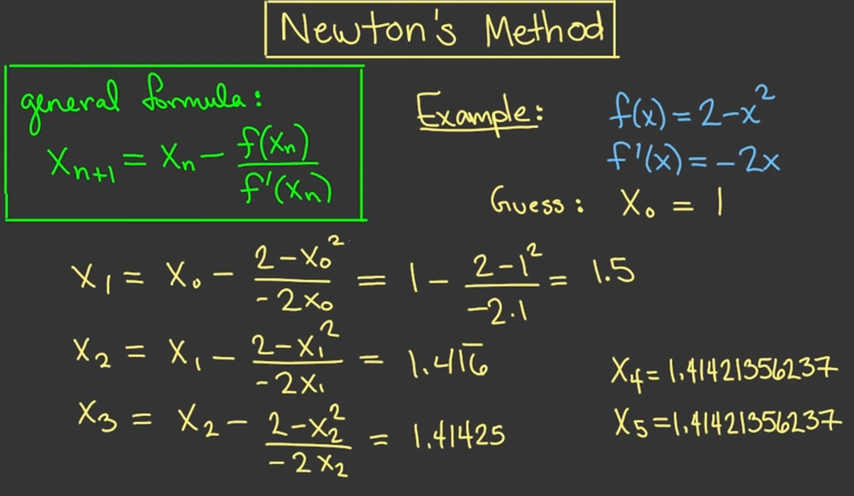 Newton's Method
general formula:
Xn+1 = Xn - f(Xn) / f'(Xn)
Example:
f(x) = 2-x²
f'(x) = -2x
Guess: X₀ = 1
X₁ = X₀ - (2-X₀²) / (-2X₀) = 1 - (2-1²) / (-2·1) = 1.5
X₂ = X₁ - (2-X₁²) / (-2X₁) = 1.416̅
X₃ = X₂ - (2-X₂²) / (-2X₂) = 1.41425
X₄ = 1.41421356237
X₅ = 1.41421356237